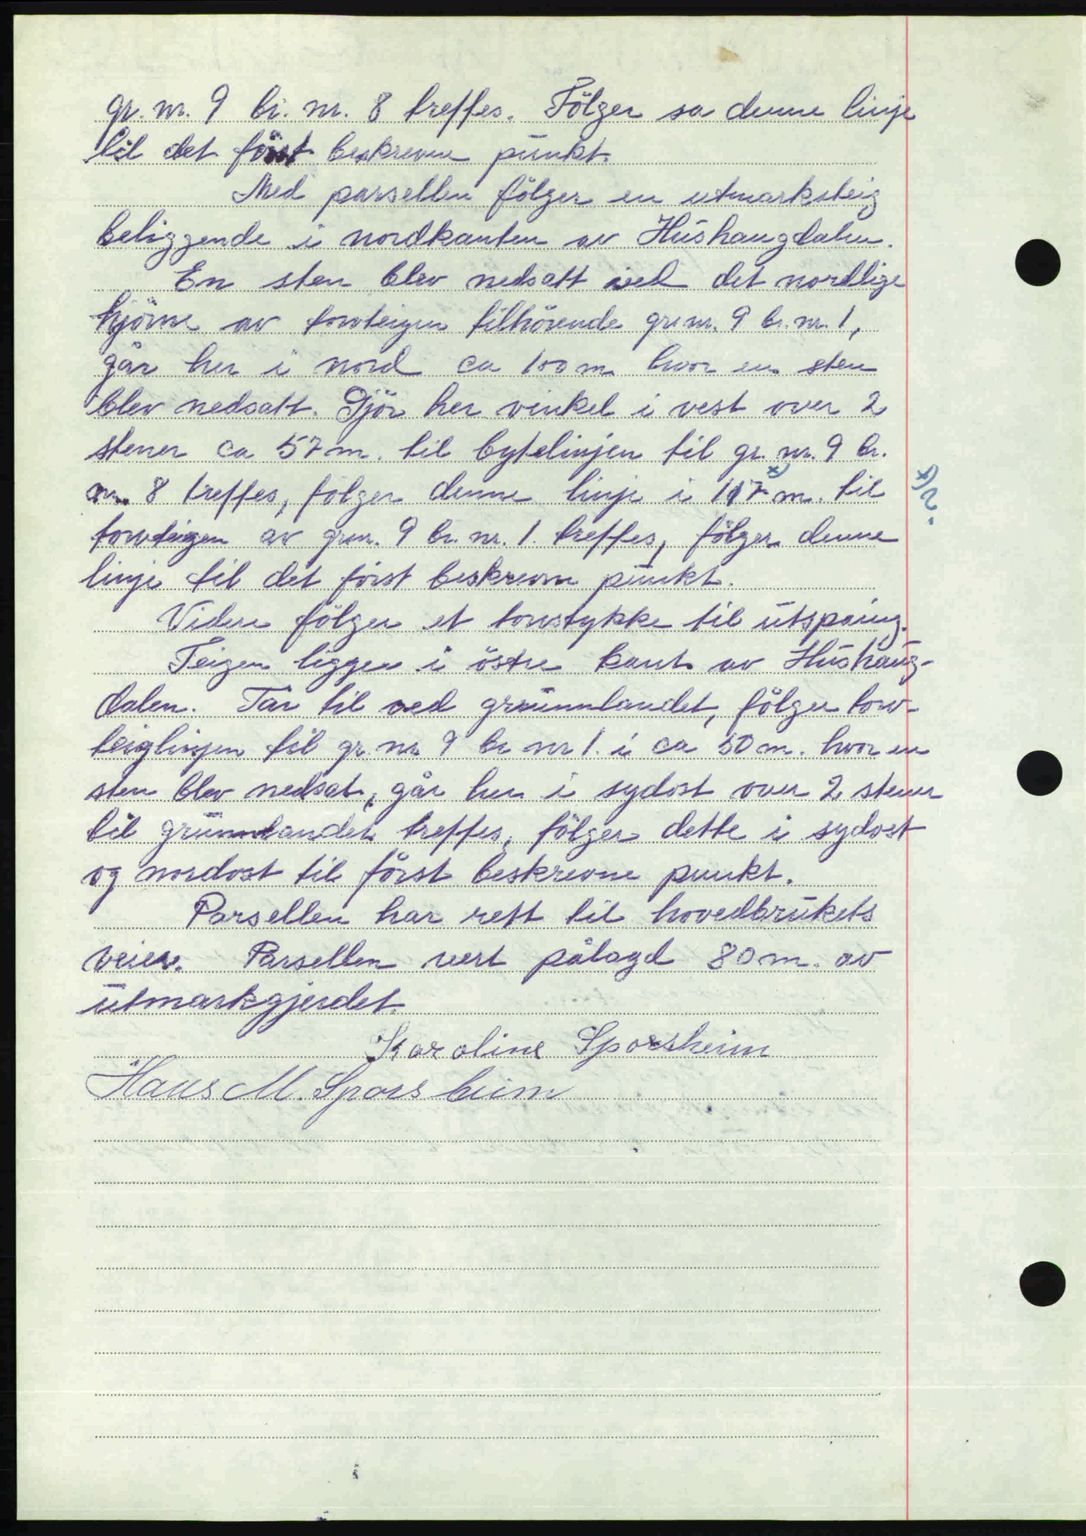 gr. nr. 9 br. nr. 8 treffes. Fölger sa denne linje
til det först beskrevne punkt.
Med parsellen fölger en utmarksteig
beliggende i nordkanten av Hushaugdalen.
En sten blev nedsatt ved det nordlige
hjörne av torvteigen tilhörende gr. nr. 9 br. nr. 1,
går her i nord ca 100 m hvor en sten
blev nedsatt. Gjör her vinkel i vest over 2
stener ca 57 m. til bytelinjen til gr. nr. 9 br.
nr. 8 treffes, fölger denne linje i 117 x) m. til
x) 2.
torvteigen av gr. nr. 9 br. nr. 1. treffes, fölger denne
linje til det först beskrevne punkt.
Videre fölger et torvstykke til utspaing.
Teigen ligger i östre kant av Hushaug-
dalen. Tar til ved grunnlandet, fölger torv-
teiglinjen til gr. nr. 9 br. nr 1. i ca 50 m. hvor en
sten blev nedsat, går her i sydost over 2 stener
til grunnlandet treffes, fölger dette i sydost
og nordost til först beskrevne punkt.
Parsellen har rett til hovedbrukets
veier. Parsellen vert pålagd 80 m. av
utmarkgjerdet.
Karoline Sporsheim
Hans M. Sporsheim